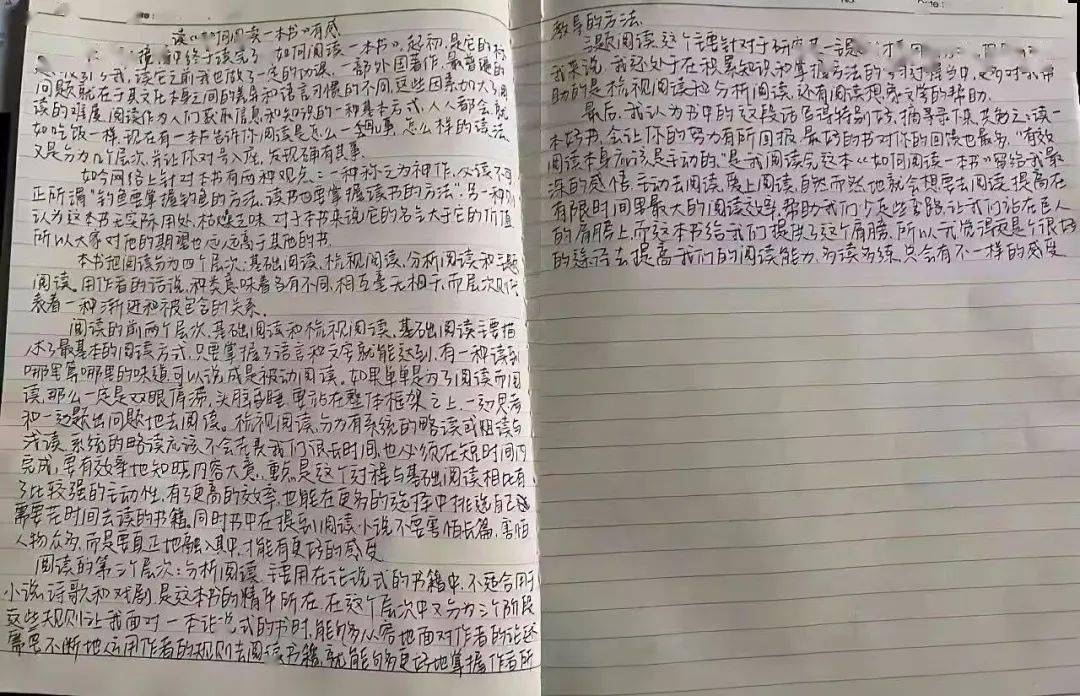 读《如何阅读一本书》有感
终于读完了《如何阅读一本书》,起初,是它的
吸引了我,读它之前我也做了一定的功课,一部外国著作,最普遍的
问题就在于其文化本身之间的差异和语言习惯的不同,这些因素加大了阅
读的难度,阅读作为人们获取信息和知识的一种基本方式,人人都会,就
如吃饭一样,现在有一本书告诉你阅读是怎么一回事,怎么样的读法,
又是分为几个层次,并让你对号入座,发现确有其事。
如今网络上针对本书有两种观点:一种称之为神作,必读不可
正所谓"钓鱼要掌握钓鱼的方法,读书也要掌握读书的方法"。另一种则
认为这本书无实际用处,枯燥乏味,对于本书来说它的名言大于它的价值
所以大家对他的期望也远远高于其他的书。
本书把阅读分为四个层次:基础阅读、检视阅读、分析阅读和主题
阅读。用作者的话说,种类意味着各有不同,相互毫无相干,而层次则代
表着一种渐进和被包含的关系。
阅读的前两个层次,基础阅读和检视阅读,基础阅读主要描
述了最基本的阅读方式,只要掌握了语言和文字就能达到,有一种读到
哪里算哪里的味道,可以说成是被动阅读。如果单单是为了阅读而阅
读,那么一定是双眼停滞,头脑昏睡,要站在整体框架之上,一边思考
和一边题出问题地去阅读。检视阅读,分为有系统的略读或粗读与
浅读,系统的略读应该不会花费我们很长时间,也必须在短时间内
完成,要有效率地知晓内容大意,重点是这个过程与基础阅读相比有
了比较强的主动性,有了更高的效率,也能在更多的选择中挑选自己
需要花时间去读的书籍,同时书中在提到阅读小说不要害怕长篇,害怕
人物众多,而是要真正地融入其中,才能有更好的感受
阅读的第三个层次:分析阅读,主要用在论说式的书籍中,不适合用于
小说、诗歌和戏剧,是这本书的精华所在,在这个层次中又分为三个阶段
这些规则让我面对一本论说式的书时,能够从容地面对作者的论述
需要不断地运用作者的规则去阅读书籍,就能够更好地掌握作者所
教导的方法。
主题阅读,这个主要针对于研究某一课
我来说,我还处于在积累知识和掌握方法的学习过程当中,更多对我有帮
助的是检视阅读和分析阅读,还有阅读想象文学的帮助。
最后,我认为书中的这段话写得特别好,摘录下来,共勉之:读一
本好书,会让你的努力有所回报,最好的书对你的回馈也最多。"有效
阅读本身应该是主动的"是我阅读完这本《如何阅读一本书》留给我最
深的感悟,主动去阅读,爱上阅读,自然而然地就会想要去阅读,提高在
有限时间里最大的阅读效率,帮助我们少走些弯路,让我们站在巨人
的肩膀上,而这本书给我们提供了这个肩膀,所以我觉得这是个很好
的途径去提高我们的阅读能力,多读多练,只会有不一样的感受